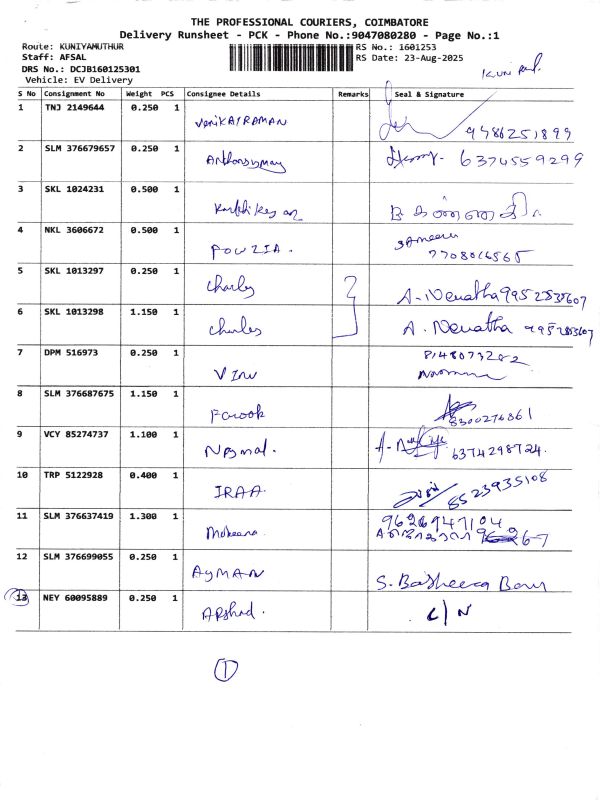 THE PROFESSIONAL COURIERS, COIMBATORE
Delivery Runsheet - PCK - Phone No.:9047080280 - Page No.:1
Route: KUNIYAMUTHUR RS No.: 1601253
Staff: AFSAL RS Date: 23-Aug-2025
DRS No.: DCJB160125301
Vehicle: EV Delivery
S No Consignment No Weight PCS Consignee Details Remarks Seal & Signature
1 TNJ 2149644 0.250 1 9786251899
2 SLM 376679657 0.250 1 6374559299
3 SKL 1024231 0.500 1
4 NKL 3606672 0.500 1 POUZIA.
7708016565
5 SKL 1013297 0.250 1 Charles
6 SKL 1013298 1.150 1 Charles
7 DPM 516973 0.250 1 VINU
8 SLM 376687675 1.150 1 Farook 8300276861
9 VCY 85274737 1.100 1 6374298724.
10 TRP 5122928 0.400 1 IRAA. 8523935108
11 SLM 376637419 1.300 1 9626947104
12 SLM 376699055 0.250 1 AYMAN S. Basheera Banu
13 NEY 60095889 0.250 1 ARshad. C/N
1